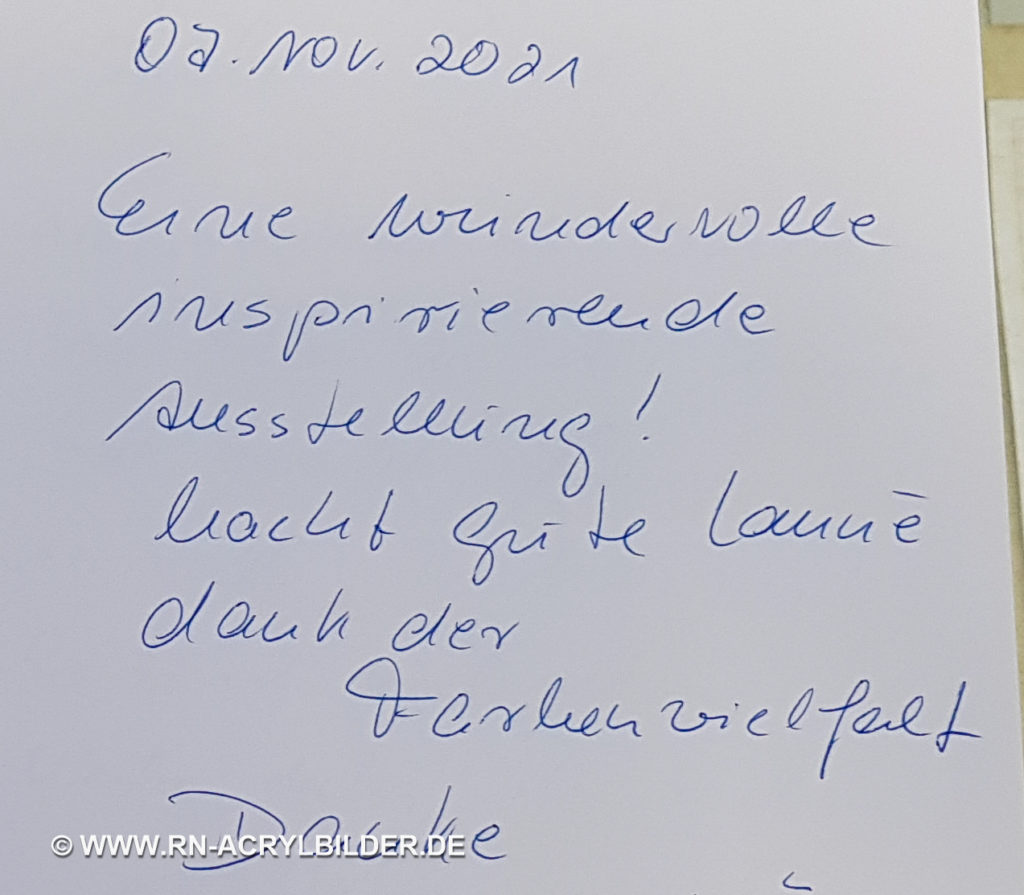 07. Nov. 2021
Eine wundervolle
inspirierende
Ausstellung!
Macht gute Laune
dank der
Farbenvielfalt
Danke
© WWW.RN-ACRYLBILDER.DE